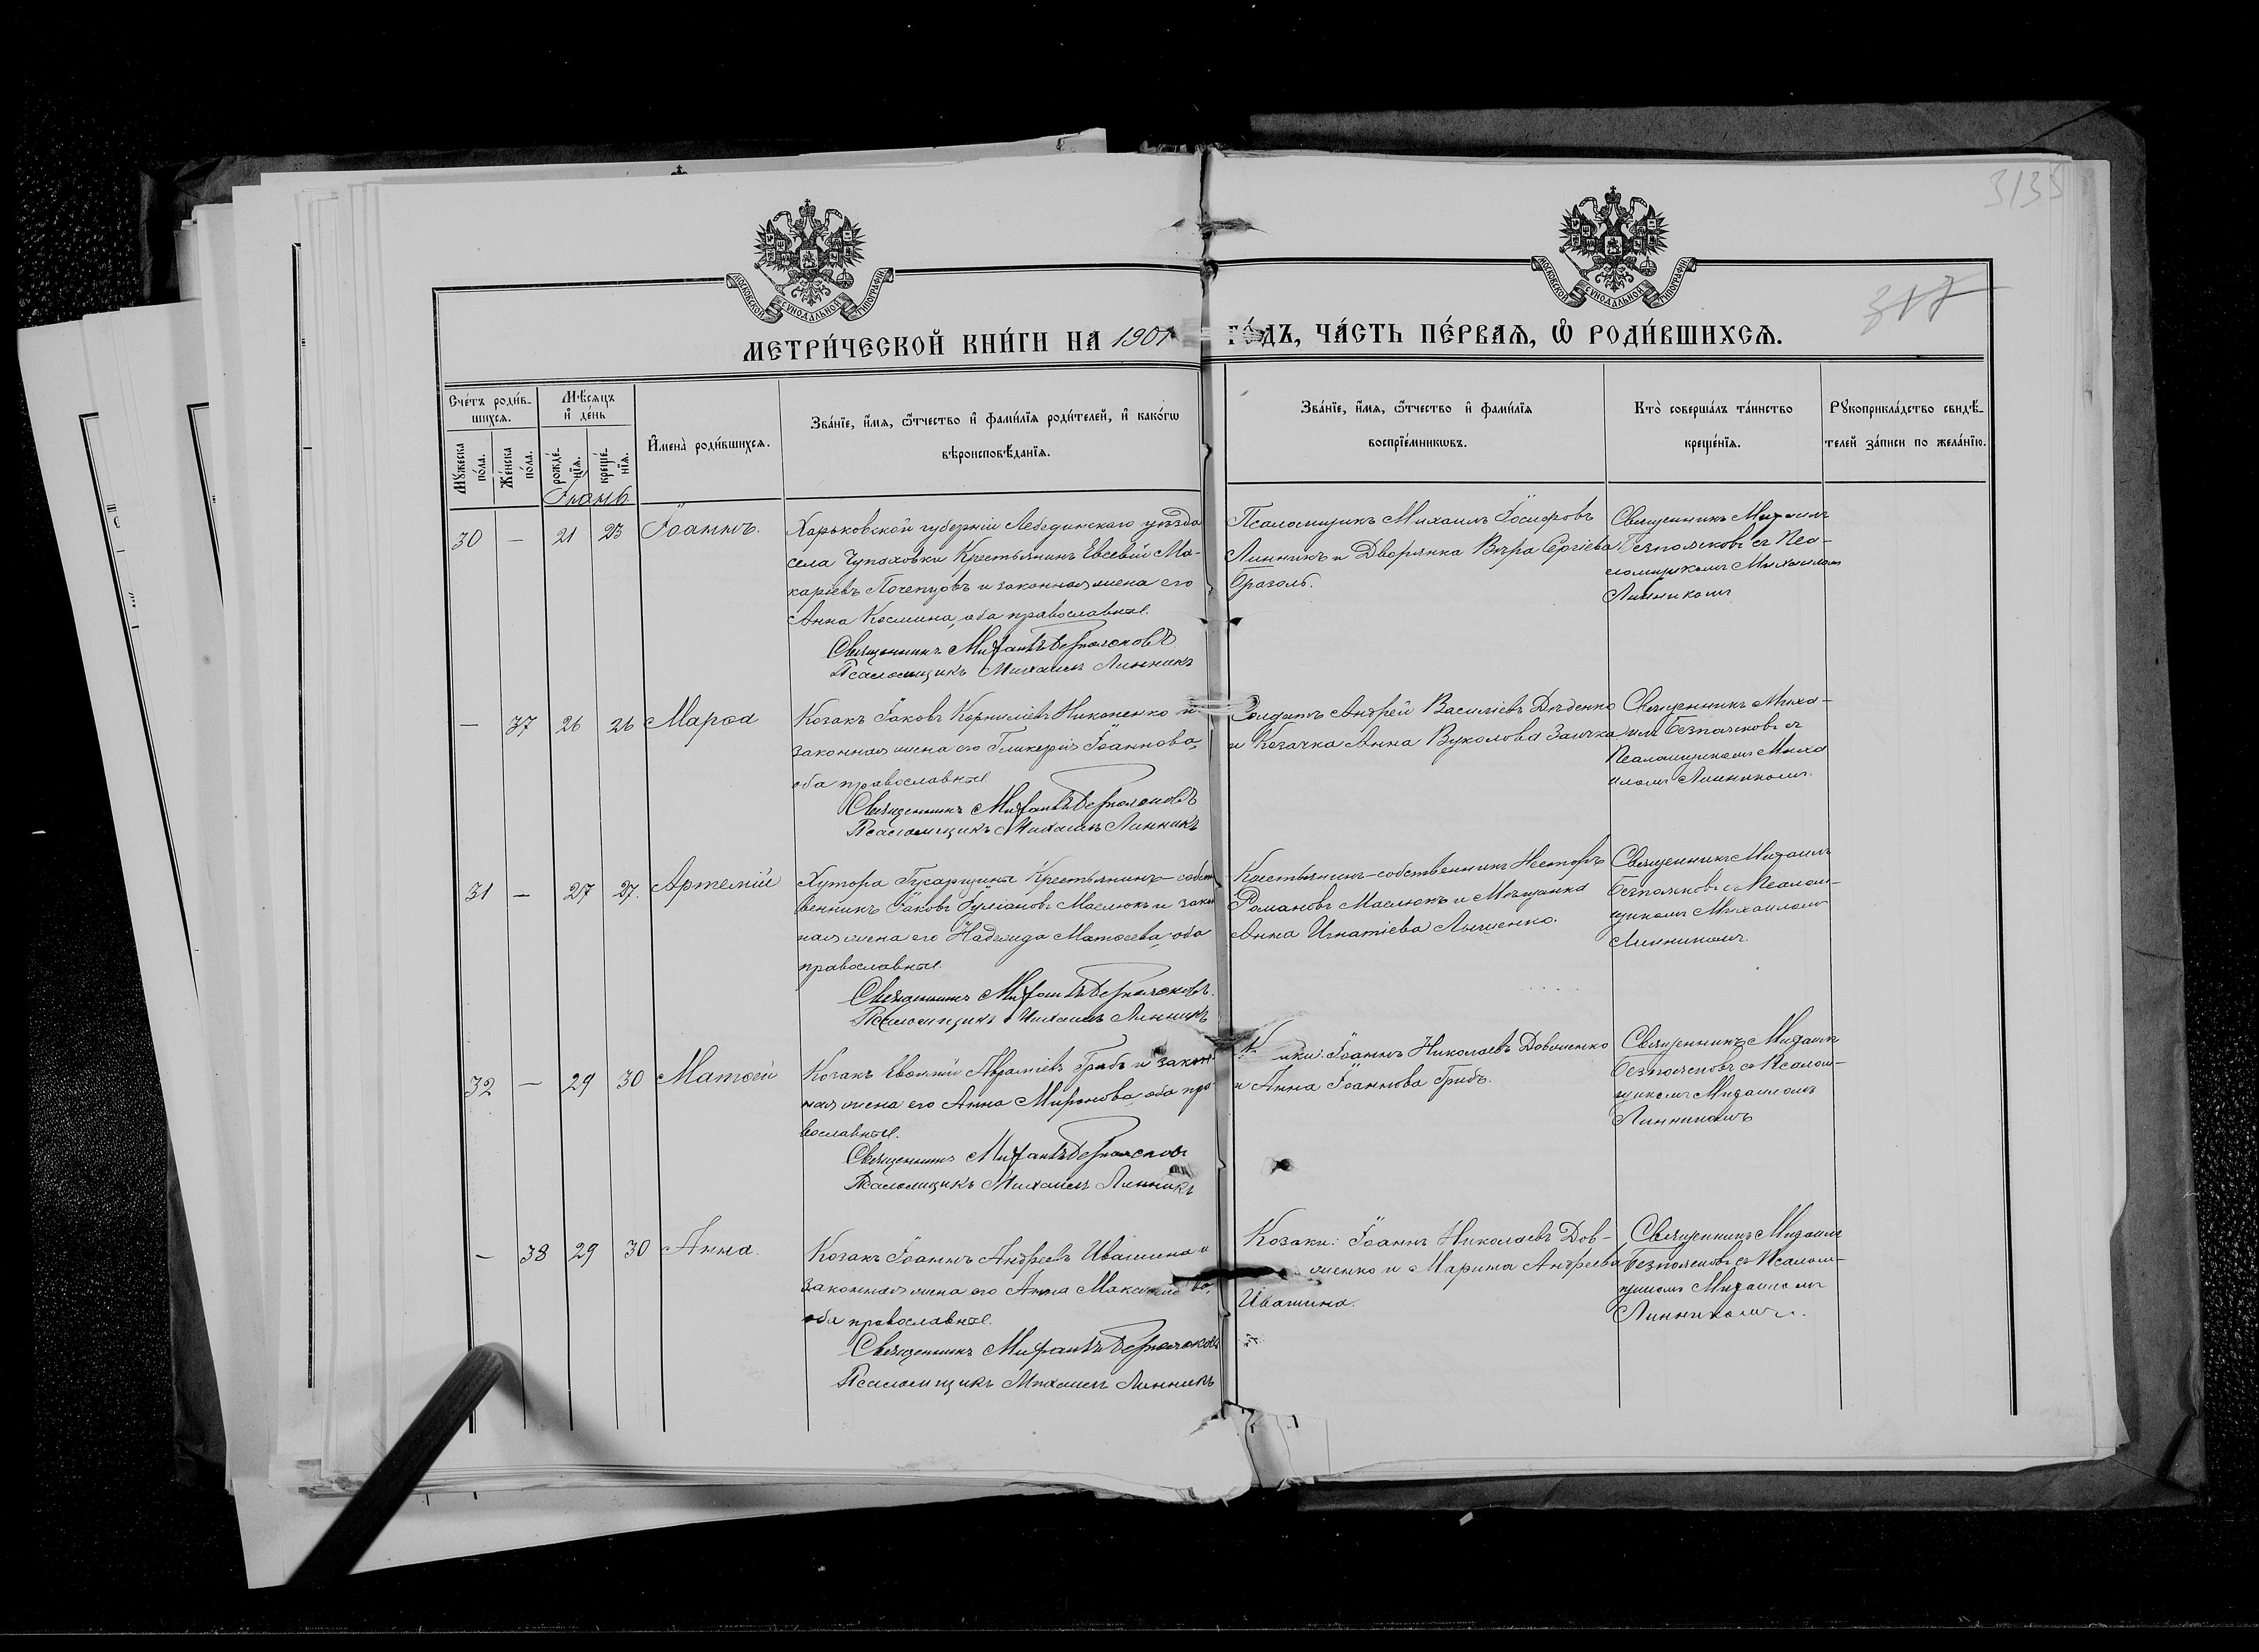 3135
317
МОСКОВСКОЙ СѴНОДАЛЬНОЙ ТИПОГРАФІИ
МОСКОВСКОЙ СѴНОДАЛЬНОЙ ТИПОГРАФІИ
МЕТРИ́ЧЕСКОЙ КНИ́ГИ НА 1901 ГО́ДЪ, ЧА́СТЬ ПЕ́РВАЯ, Ѡ҆ РОДИ́ВШИХСѦ.
Сче́тъ роди́в-
шихсѧ.
Мꙋ́жеска по́ла.
Же́нска по́ла.
Мѣ́сѧцъ
и҆ де́нь
рожде́-
нїѧ.
креще́-
нїѧ.
И҆мена̀ роди́вшихсѧ.
Зва́нїе, и҆́мѧ, ѻ҆́тчество и҆ фами́лїѧ роди́телей, и҆ како́гѡ
вѣроисповѣ́данїѧ.
Зва́нїе, и҆́мѧ, ѻ҆́тчество и҆ фами́лїѧ
воспрїе́мникѡвъ.
Кто̀ соверша́лъ та́инство
креще́нїѧ.
Рꙋкоприкла́дство свидѣ́-
телей за́писи по жела́нїю.
30 — 21 23 Іоаннъ.
Харьковской губерніи Лебединскаго уѣзда
села Чупаховки Крестьянинъ Евсевій Ма-
каріевъ Почепцовъ и законная жена его
Анна Космина, оба православные.
Священникъ Михаилъ Безпоясковъ
Псаломщикъ Михаилъ Линникъ
Псаломщикъ Михаилъ Іосифовъ
Линникъ и Дворянка Вѣра Сергіева
Бразоль.
Священникъ Михаилъ
Безпоясковъ съ Пса-
ломщикомъ Михаиломъ
Линникомъ
— 37 26 26 Марѳа
Козакъ Іаковъ Корниліевъ Никоненко и
законная жена его Гликерія Іоаннова,
оба православные
Священникъ Михаилъ Безпоясковъ
Псаломщикъ Михаилъ Линникъ
Солдатъ Андрей Василіевъ Дѣденко
и Козачка Анна Вуколова Заичка
Священникъ Миха-
илъ Безпоясковъ съ
Псаломщикомъ Миха
иломъ Линникомъ.
31 — 27 27. Артемій
Хутора Гусарщина Крестьянинъ-собст
венникъ Іаковъ Іуліановъ Маслюкъ и закон
ная жена его Надежда Матѳеева, оба
православные.
Священникъ Михаилъ Безпоясковъ.
Псаломщикъ Михаилъ Линникъ
Крестьянинъ-собственникъ Несторъ
Романовъ Маслюкъ и Мѣщанка
Анна Игнатіева Лышенко.
Священникъ Михаилъ
Безпоясковъ съ Псалом-
щикомъ Михаиломъ
Линникомъ.
32 — 29 30 Матѳей
Козакъ Евѳимій Авраміевъ Грибъ и закон-
ная жена его Анна Миронова, оба пра
вославные.
Священникъ Михаилъ Безпоясковъ
Псаломщикъ Михаилъ Линникъ
Іоаннъ Николаевъ Довженко
и Анна Іоаннова Грибъ.
Священникъ Михаилъ
Безпоясковъ съ Псалом-
щикомъ Михаиломъ
Линникомъ
— 38 29 30 Анна.
Козакъ Іоаннъ Андреевъ Ивашина и
законная жена его Анна
оба православные.
Священникъ Михаилъ Безпоясковъ
Псаломщикъ Михаилъ Линникъ
Козаки: Іоаннъ Николаевъ Дов-
женко и Марина Андреева
Ивашина.
Священникъ Михаилъ
Безпоясковъ съ Псалом-
щикомъ Михаиломъ
Линникомъ.